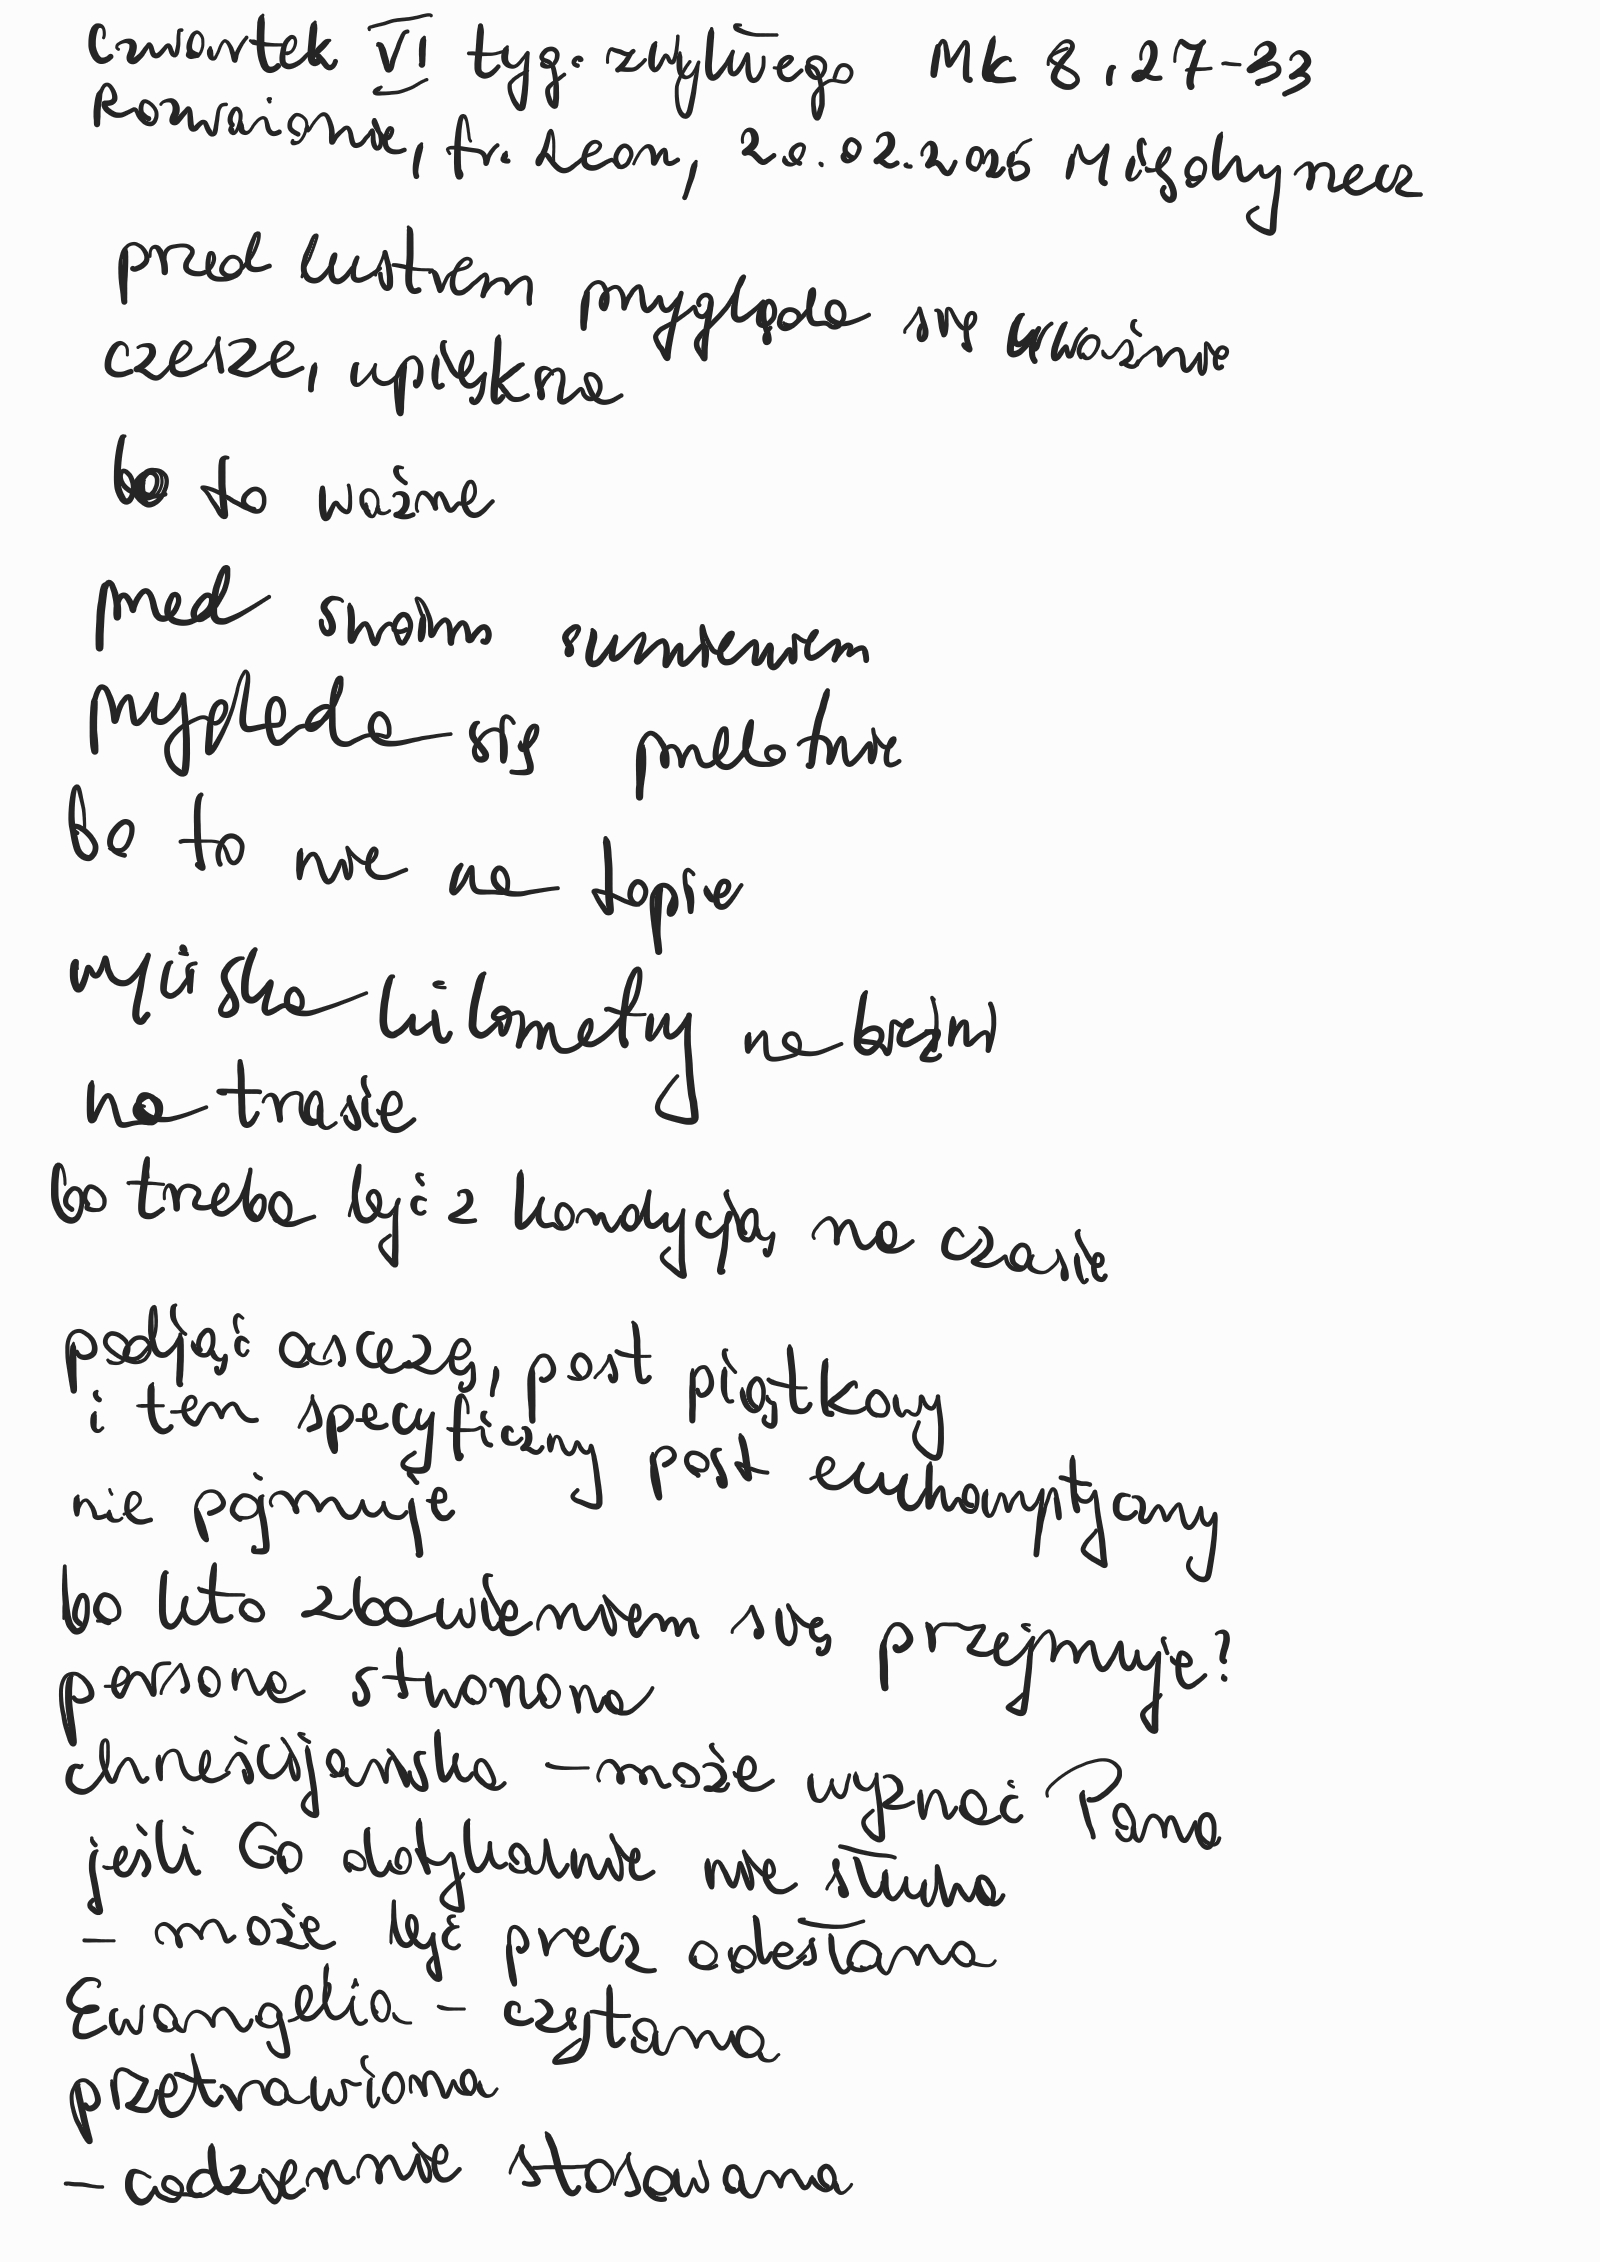 Czwartek VI tyg. zwykłego Mk 8,27-33
Rozważanie, fr. Leon, 20.02.2025 Między nocz
przed lustrem przygląda się uważnie
czesze, upiększa
bo to ważne
przed swoim sumieniem
przygląda się przelotnie
bo to nie na topie
wyciska kilometry na bieżni
na trasie
bo trzeba być z kondycją, na czasie
podjąć ascezę, post piątkowy
i ten specyficzny post eucharystyczny
nie pojmuje
bo kto zbawieniem się przejmuje?
persona stworzona
chrześcijańska – może wyznać Pana
jeśli Go dotykanie nie słucha
– może być precz odesłana
Ewangelia – czytana
przetrawiona
– codziennie stosowana